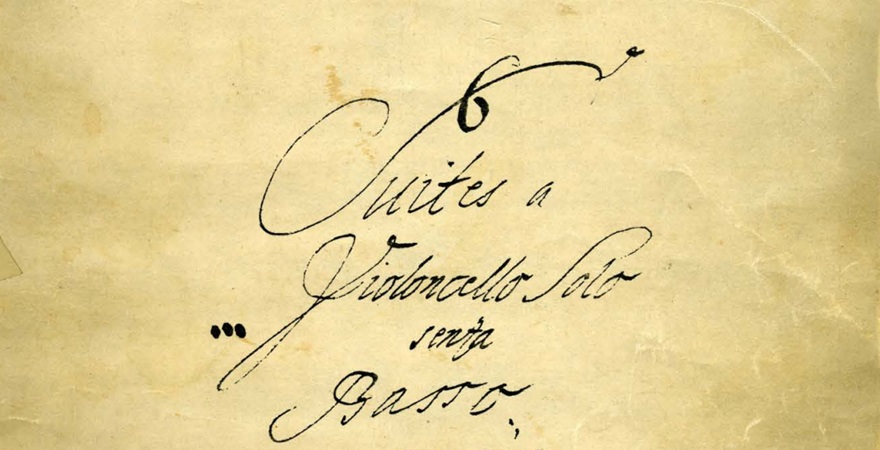 6
Suites a
Violoncello Solo
senza
Basso.